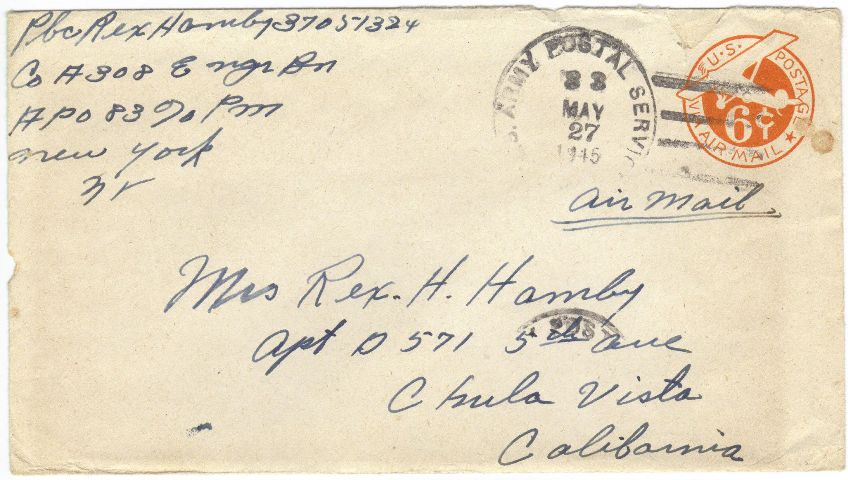 Pbc Rex Hamby 37051324
Co A 308 Engr Bn
APO 83 % Pm
new york
ny
U.S. ARMY POSTAL SERVICE
33
MAY
27
1945
U.S. POSTAGE
6¢
VIA AIR MAIL
air mail
Mrs Rex. H. Hamby
Apt D 571 5th ave
Chula Vista
California
POST